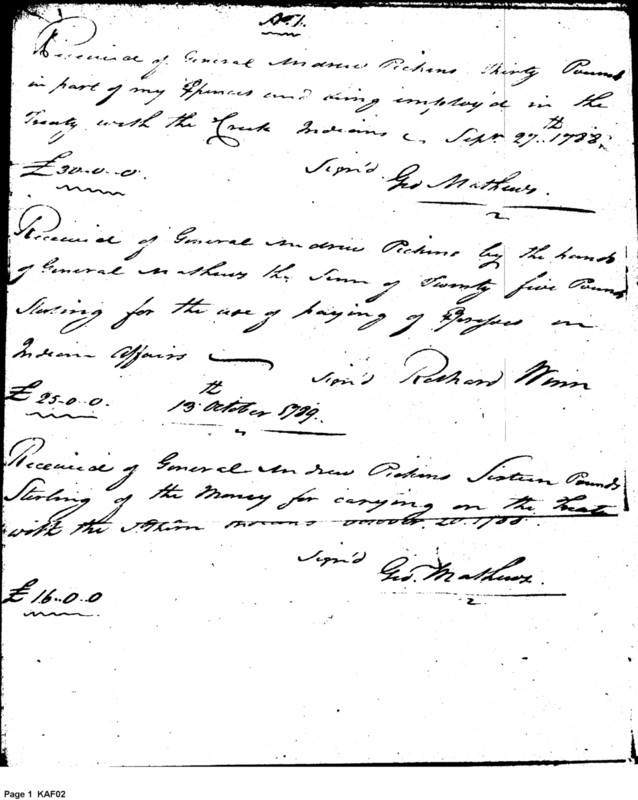 No. 1.
Received of General Andrew Pickens Thirty Pounds
in part of my Expences and being employ'd in the
Treaty with the Creek Indians Sept. 27th 1788.
£ 30..0..0. Sign'd Geo Mathews.
Received of General Andrew Pickens by the hands
of General Mathews the Sum of Twenty five Pounds
Sterling for the use of paying of Expresses on
Indian Affairs Sign'd Richard Winn
£ 25-0-0. 13th October
Received of General Andrew Pickens Sixteen Pounds
Sterling of the Money for carying on the Treaty
with the Indians October 20. 1788.
Sign'd Geo. Mathews.
£ 16-0-0
Page 1 KAF02